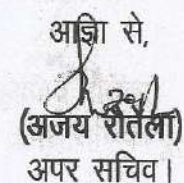 आज्ञा से,
(अजय रौतेला)
अपर सचिव।